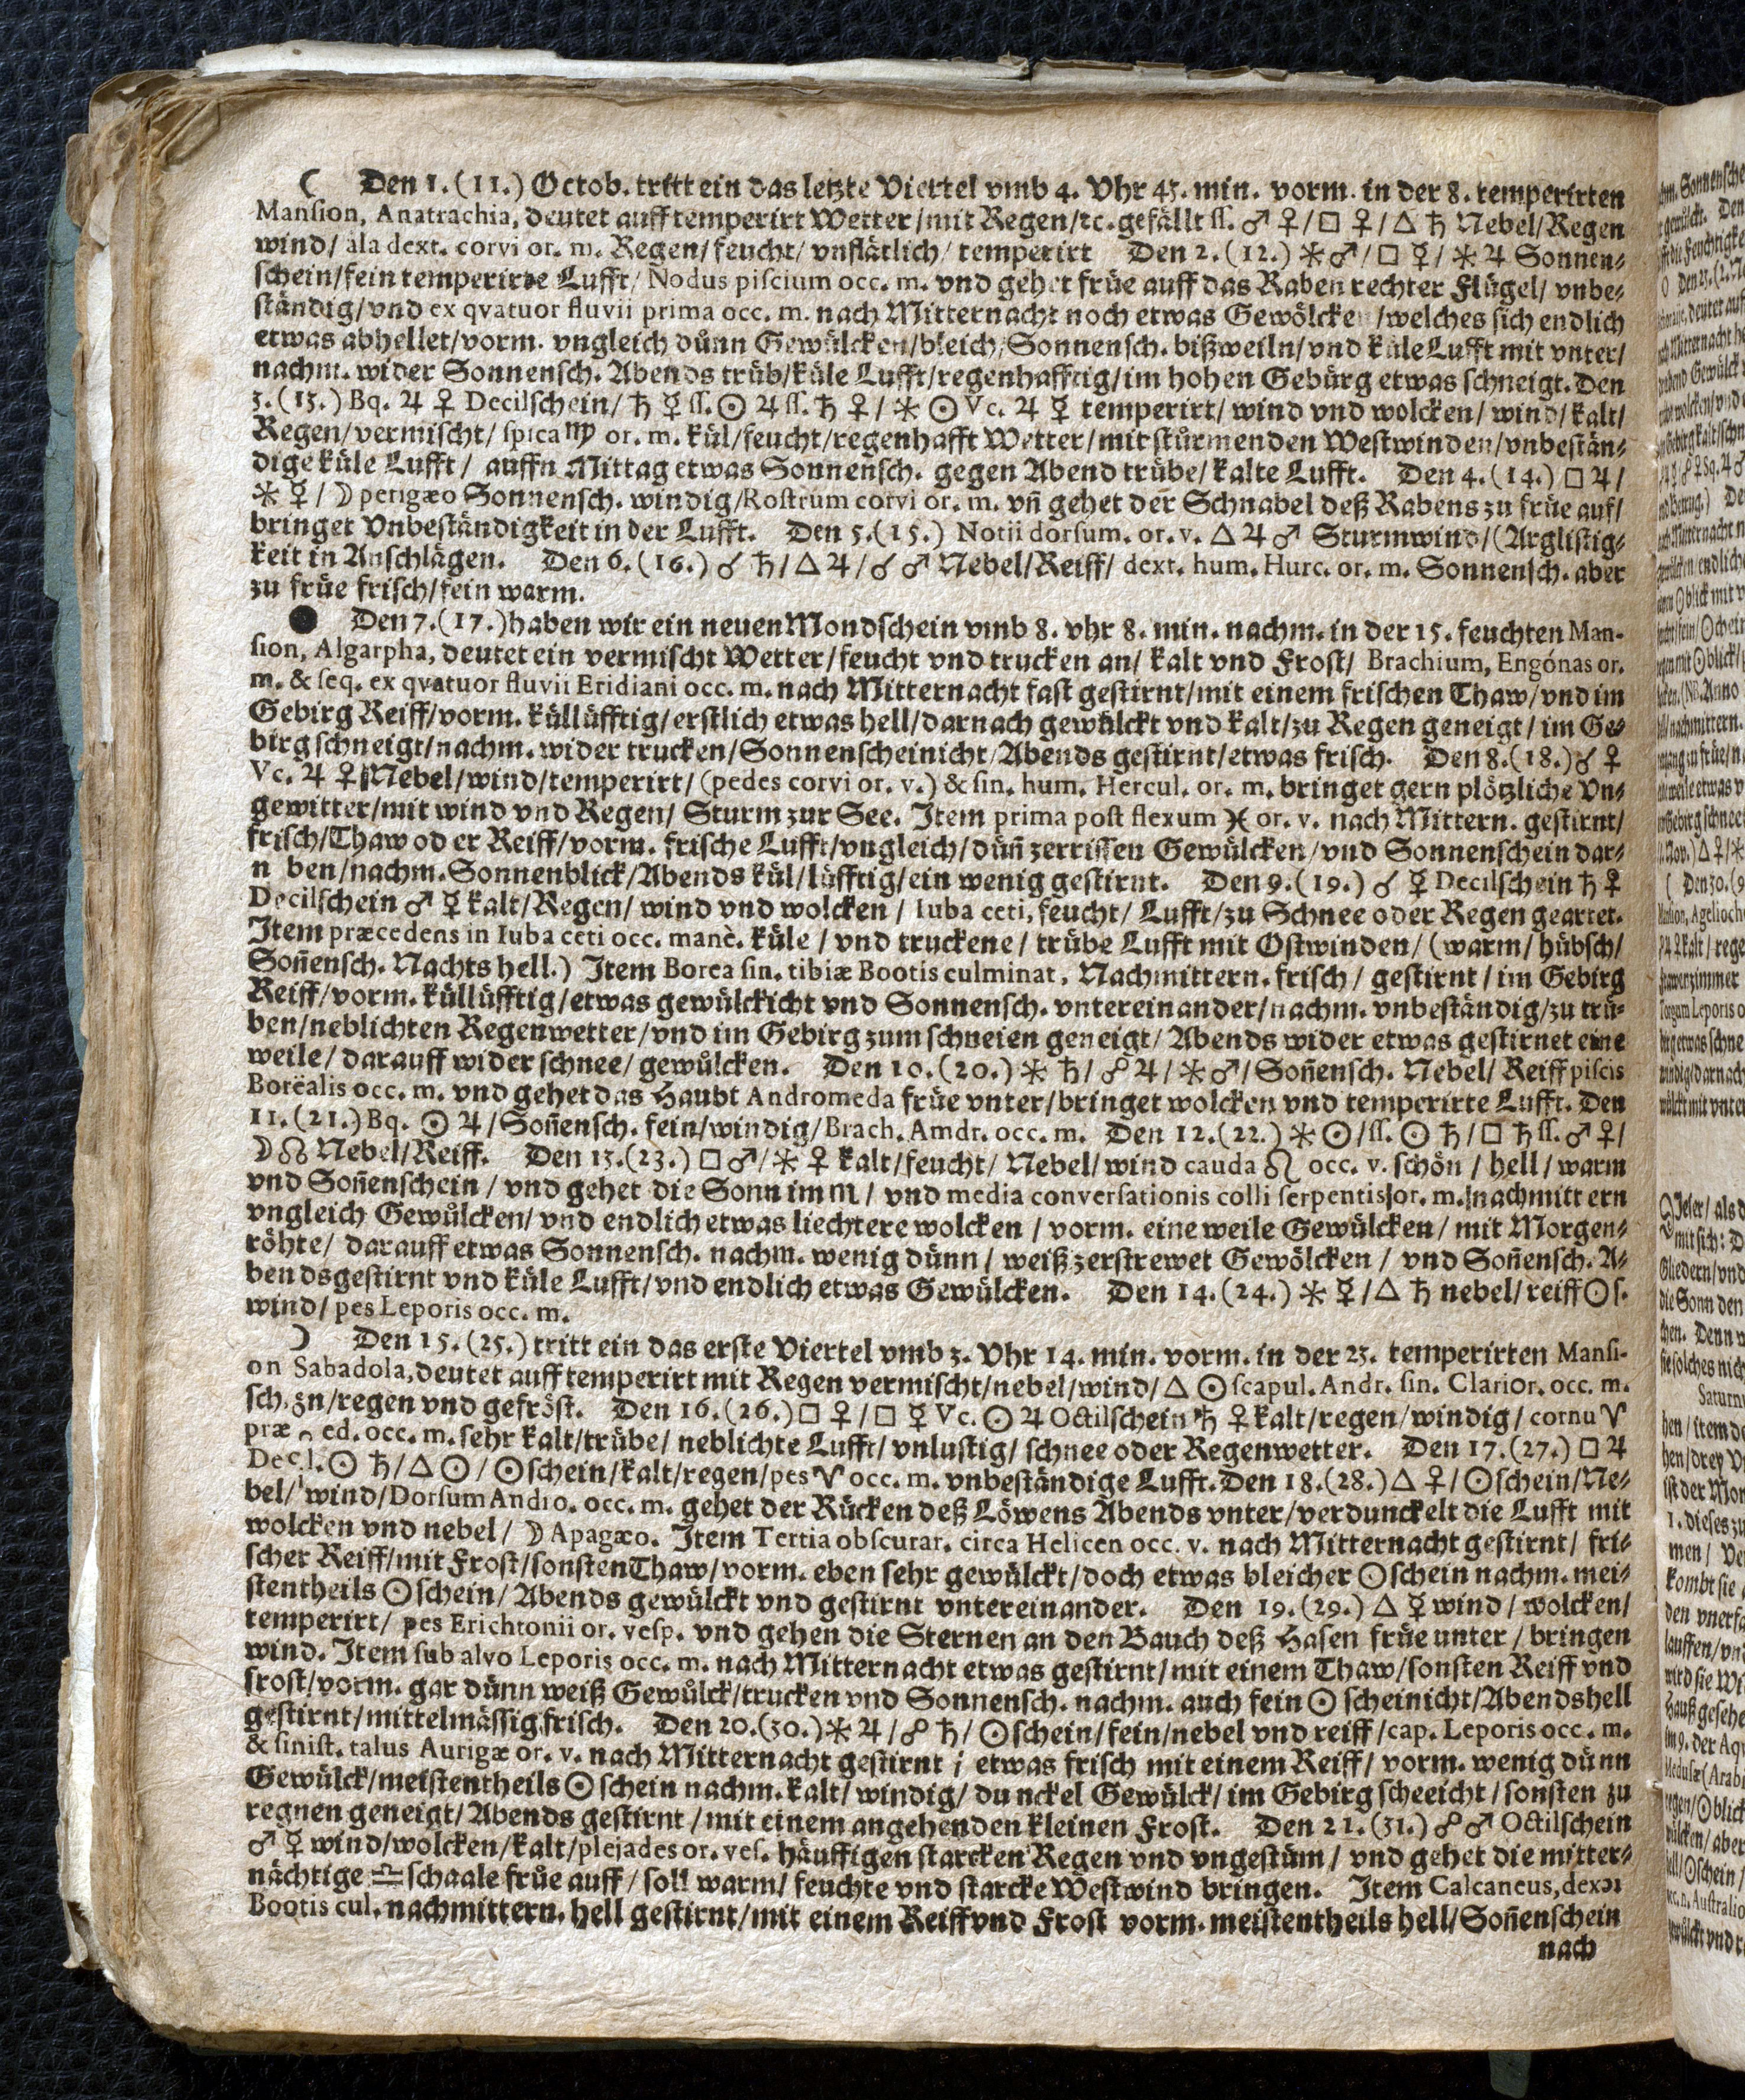 ☾ Den 1. (11.) Octob. tritt ein das letzte Viertel vmb 4. Vhr 45. min. vorm. in der 8. temperirten
Mansion, Anatrachia, deutet auff temperirt Wetter/mit Regen/ꝛc. gefällt ſſ. ♂ ♀/□ ♀/△ ♄ Nebel/Regen
wind/ ala dext. corvi or. m. Regen/feucht/ vnflätlich/ temperirt Den 2. (12.) ⚹ ♂/□ ☿/⚹ ♃ Sonnen⸗
ſchein/fein temperirte Lufft/ Nodus piſcium occ. m. vnd gehet früe auff das Raben rechter Flügel/ vnbe⸗
ſtändig/vnd ex qvatuor fluvii prima occ. m. nach Mitternacht noch etwas Gewölcke /welches ſich endlich
etwas abhellet/vorm. vngleich dünn Gewülcken/bleich/Sonnenſch. bißweiln/vnd küle Lufft mit vnter/
nachm. wider Sonnenſch. Abends trüb/küle Lufft/regenhafftig/im hohen Gebürg etwas ſchneigt. Den
3. (13.) Bq. ♃ ♀ Decilſchein/ ♄ ☿ ſſ. ☉ ♃ ſſ. ♄ ♀/ ⚹ ☉ Vc. ♃ ☿ temperirt/ wind vnd wolcken/ wind/ kalt/
Regen/vermiſcht/ ſpica ♍ or. m. kül/feucht/regenhafft Wetter/mit ſtürmenden Weſtwinden/vnbeſtän⸗
dige küle Lufft/ auffn Mittag etwas Sonnenſch. gegen Abend trübe/kalte Lufft. Den 4. (14.) □ ♃/
⚹ ☿ / ☽ perigæo Sonnenſch. windig/Roſtrum corvi or. m. vñ gehet der Schnabel deß Rabens zu früe auf/
bringet Vnbeſtändigkeit in der Lufft. Den 5. (15.) Notii dorſum. or. v. △ ♃ ♂ Sturmwind/(Argliſtig⸗
keit in Anſchlägen. Den 6. (16.) ☌ ♄/△ ♃/☌ ♂ Nebel/Reiff/ dext. hum. Hurc. or. m. Sonnenſch. aber
zu früe friſch/fein warm.
● Den 7. (17.) haben wir ein neuen Mondſchein vmb 8. vhr 8. min. nachm. in der 15. feuchten Man-
ſion, Algarpha, deutet ein vermiſcht Wetter/feucht vnd trucken an/ kalt vnd Froſt/ Brachium, Engónas or.
m. & ſeq. ex qvatuor fluvii Eridiani occ. m. nach Mitternacht faſt geſtirnt/mit einem friſchen Thaw/vnd im
Gebirg Reiff/vorm. küllüfftig/erſtlich etwas hell/darnach gewülckt vnd kalt/zu Regen geneigt/ im Ge⸗
birg ſchneigt/nachm. wider trucken/Sonnenſcheinicht/Abends geſtirnt/etwas friſch. Den 8. (18.) ☌ ♀
Vc. ♃ ♀ Nebel/wind/temperirt/ (pedes corvi or. v.) & ſin. hum. Hercul. or. m. bringet gern plötzliche Vn⸗
gewitter/mit wind vnd Regen/ Sturm zur See. Item prima poſt flexum ♓ or. v. nach Mittern. geſtirnt/
friſch/Thaw od er Reiff/vorm. friſche Lufft/vngleich/dünñ zerriſſen Gewülcken/vnd Sonnenſchein dar⸗
n ben/nachm. Sonnenblick/Abends kül/lüfftig/ein wenig geſtirnt. Den 9. (19.) ☌ ☿ Decilſchein ♄ ♀
Decilſchein ♂ ☿ kalt/Regen/ wind vnd wolcken / Iuba ceti, feucht/ Lufft/zu Schnee oder Regen geartet.
Item præcedens in Iuba ceti occ. manè. küle / vnd truckene / trübe Lufft mit Oſtwinden/ (warm/ hübſch/
Soñenſch. Nachts hell.) Item Borea ſin. tibiæ Bootis culminat, Nachmittern. friſch/ geſtirnt / im Gebirg
Reiff/vorm. küllüfftig/etwas gewülckicht vnd Sonnenſch. vntereinander/nachm. vnbeſtändig/zu trü-
ben/neblichten Regenwetter/vnd im Gebirg zum ſchneien geneigt/ Abends wider etwas geſtirnet eine
weile/ darauff wider ſchnee/ gewülcken. Den 10. (20.) ⚹ ♄/ ☍ ♃/ ⚹ ♂/ Soñenſch. Nebel/ Reiff piſcis
Borëalis occ. m. vnd gehet das Haubt Andromeda früe vnter/bringet wolcken vnd temperirte Lufft. Den
11. (21.) Bq. ☉ ♃/Soñenſch. fein/windig/Brach. Amdr. occ. m. Den 12. (22.) ⚹ ☉/ſſ. ☉ ♄/□ ♄ ſſ. ♂ ♀/
☽ ☊ Nebel/Reiff. Den 13. (23.) □ ♂/⚹ ♀ kalt/feucht/ Nebel/ wind cauda ♌ occ. v. ſchön / hell / warm
vnd Soñenſchein / vnd gehet die Sonn im ♏ / vnd media converſationis colli ſerpentis or. m. nachmitt ern
vngleich Gewülcken/ vnd endlich etwas liechtere wolcken / vorm. eine weile Gewülcken / mit Morgen⸗
röhte/ darauff etwas Sonnenſch. nachm. wenig dünn / weiß zerſtrewet Gewölcken / vnd Soñenſch. A⸗
bends geſtirnt vnd küle Lufft/vnd endlich etwas Gewülcken. Den 14. (24.) ⚹ ☿ / △ ♄ nebel/ reiff ☉ ſ.
wind/ pes Leporis occ. m.
☽ Den 15. (25.) tritt ein das erſte Viertel vmb 3. Vhr 14. min. vorm. in der 23. temperirten Manſi-
on Sabadola, deutet auff temperirt mit Regen vermiſcht/nebel/wind/ △ ☉ ſcapul. Andr. ſin. Clarior. occ. m.
ſchön/regen vnd gefröſt. Den 16. (26.) □ ♀ / □ ☿ Vc. ☉ ♃ Octilſchein ♄ ♀ kalt/regen/windig/ cornu ♈
præ ed. occ. m. ſehr kalt/trübe/ neblichte Lufft/ vnluſtig/ ſchnee oder Regenwetter. Den 17. (27.) □ ♃
Decil. ☉ ♄/△ ☉/ ☉ſchein/kalt/regen/pes ♈ occ. m. vnbeſtändige Lufft. Den 18. (28.) △ ♀/ ☉ſchein/Ne⸗
bel/ wind/Dorſum Andro. occ. m. gehet der Rücken deß Löwens Abends vnter/verdunckelt die Lufft mit
wolcken vnd nebel/ ☽ Apagæo. Item Tertia obſcurar. circa Helicen occ. v. nach Mitternacht geſtirnt/ fri⸗
ſcher Reiff/mit Froſt/ſonſten Thaw/ vorm. eben ſehr gewülckt/doch etwas bleicher ☉ſchein nachm. mei⸗
ſtentheils ☉ſchein/ Abends gewülckt vnd geſtirnt vntereinander. Den 19. (29.) △ ☿ wind/ wolcken/
temperirt/ pes Erichtonii or. veſp. vnd gehen die Sternen an den Bauch deß Haſen früe unter / bringen
wind. Item ſub alvo Leporis occ. m. nach Mitternacht etwas geſtirnt/ mit einem Thaw/ſonſten Reiff vnd
froſt/vorm. gar dünn weiß Gewülck/trucken vnd Sonnenſch. nachm. auch fein ☉ ſcheinicht/Abends hell
geſtirnt/mittelmäſſig friſch. Den 20. (30.) ⚹ ♃ / ☍ ♄/ ☉ſchein/fein/nebel vnd reiff/cap. Leporis occ. m.
& ſiniſt. talus Aurigæ or. v. nach Mitternacht geſtirnt / etwas friſch mit einem Reiff/ vorm. wenig dünn
Gewülck/meiſtentheils ☉ ſchein nachm. kalt/ windig/ du nckel Gewülck/ im Gebirg ſcheeicht / ſonſten zu
regnen geneigt/ Abends geſtirnt / mit einem angehenden kleinen Froſt. Den 21. (31.) ☍ ♂ Octilſchein
♂ ☿ wind/wolcken/kalt/plejades or. veſ. häuffigen ſtarcken Regen vnd vngeſtüm / vnd gehet die mitter⸗
nächtige ♎ ſchaale früe auff/ ſoll warm/ feuchte vnd ſtarcke Weſtwind bringen. Item Calcaneus, dext
Bootis cul. nachmittern. hell geſtirnt/mit einem Reiff vnd Froſt vorm. meiſtentheils hell/Soñenſchein
nach